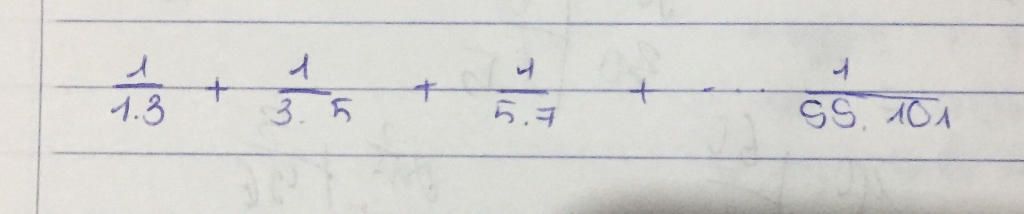 1/1.3 + 1/3.5 + 1/5.7 + .... 1/99.101